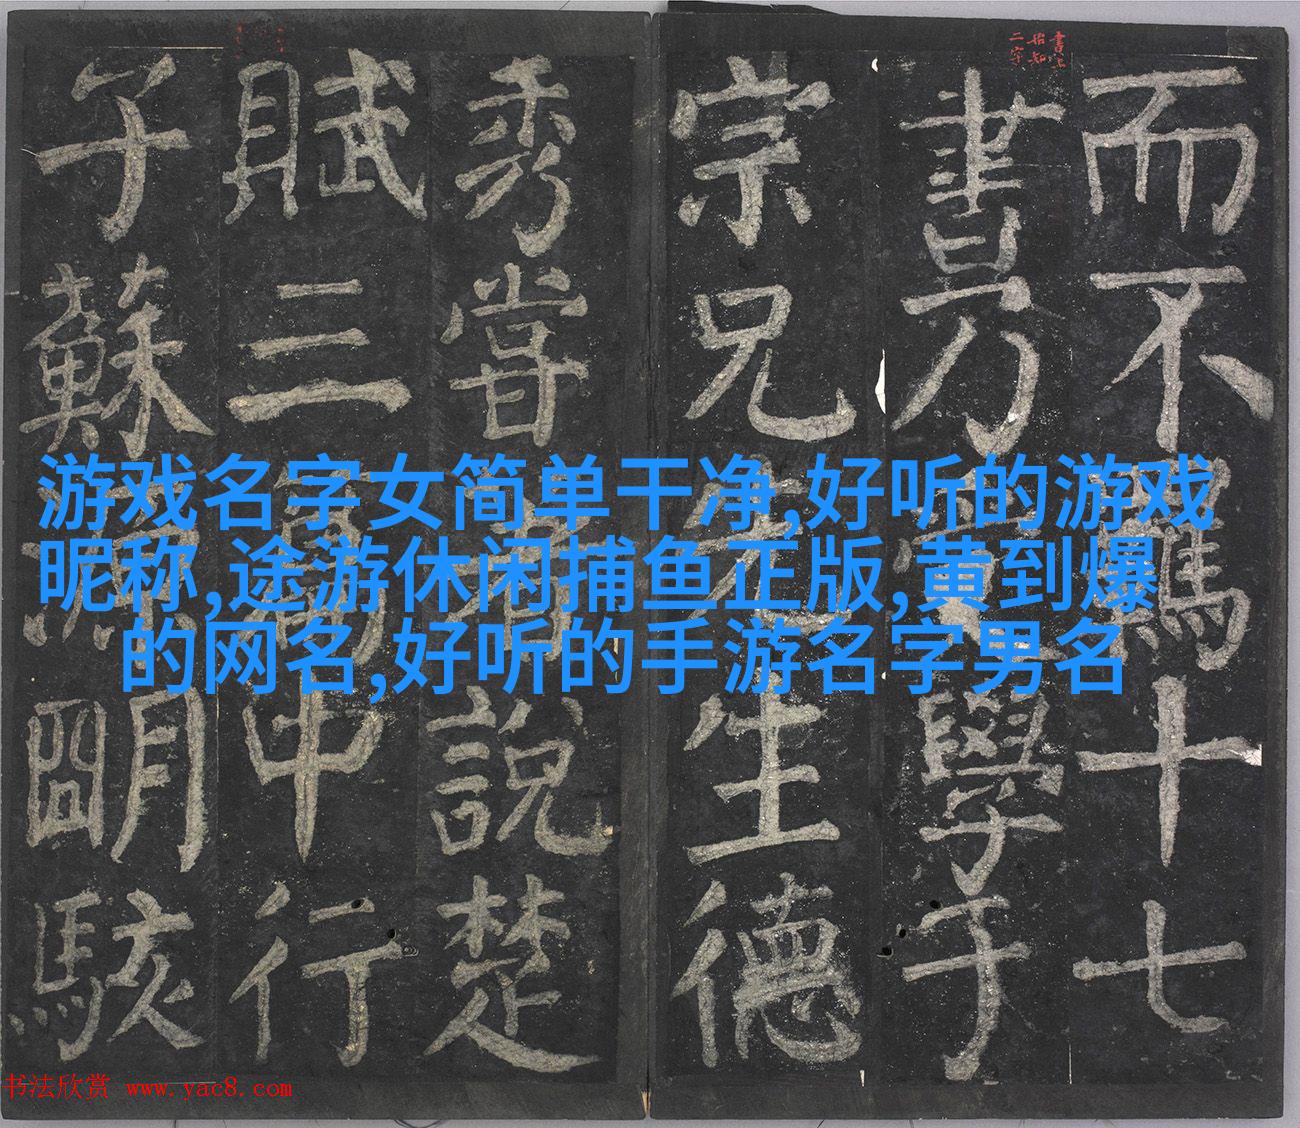 而不羈十七
書乃學于
宗兄先生德
秀嘗說楚
賦三中行
子蘇明駭
游戏名字女简单干净,好听的游戏
昵称,途游休闲捕鱼正版,黄到爆
的网名,好听的手游名字男名
书法欣赏 www.yac8.com